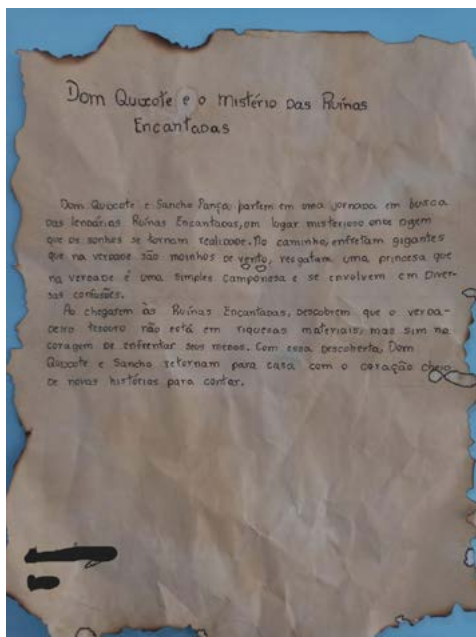 Dom Quixote e o Mistério das Ruínas
Encantadas
Dom Quixote e Sancho Pança partem em uma jornada em busca
das lendárias Ruínas Encantadas, um lugar misterioso onde dizem
que os sonhos se tornam realidade. No caminho, enfretam gigantes
que na verdade são moinhos de vento, resgatam uma princesa que
na verdade é uma simples camponesa e se envolvem em diver-
sas confusões.
Ao chegarem às Ruínas Encantadas, descobrem que o verda-
deiro tesouro não está em riquesas materiais, mas sim na
coragem de enfrentar seus medos. Com essa descoberta, Dom
Quixote e Sancho retornam para casa com o coração cheio
de novas histórias para contar.